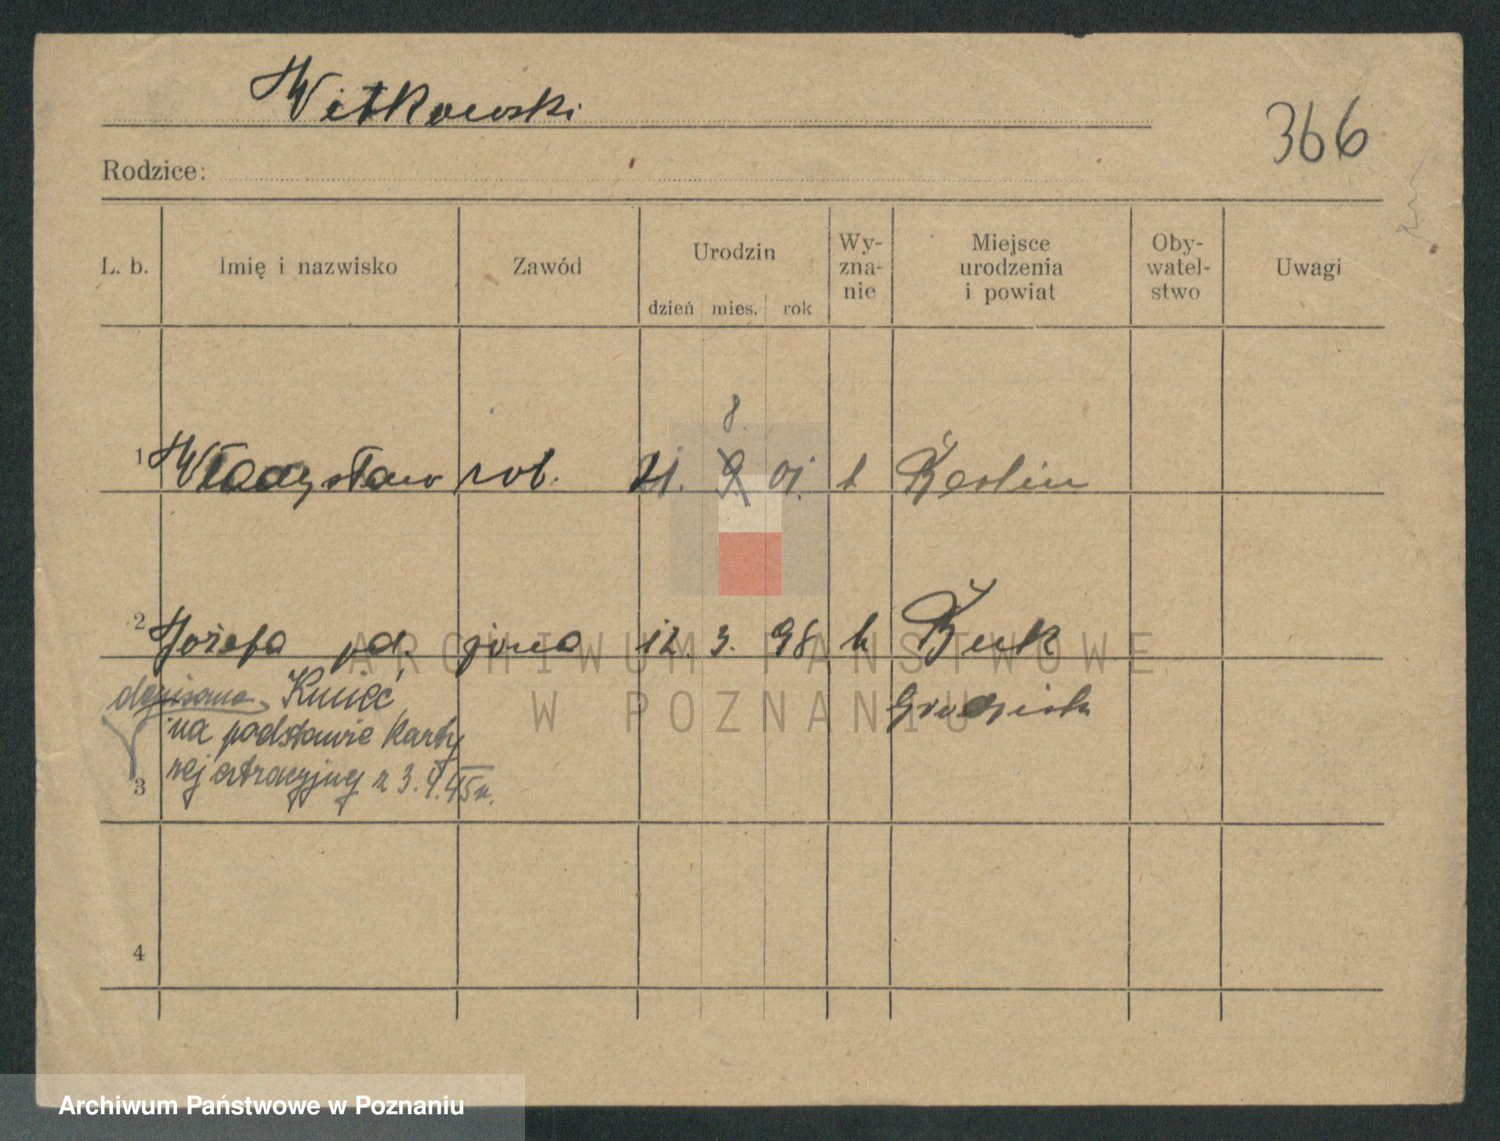 Witkowski
366
Rodzice:
L. b.
Imię i nazwisko
Zawód
Urodzin
dzień mies. rok
Wy-
zna-
nie
Miejsce
urodzenia
i powiat
Oby-
watel-
stwo
Uwagi
8.
1 Władysław rob. 21. 9. 01. k Berlin
2 Józefa żona 12. 3. 98 k Buk
dopisana Kmieć Grodzisk
na podstawie karty
rejestracyjnej z 3.4.45r.
3
4
ARCHIWUM PAŃSTWOWE
W POZNANIU
Archiwum Państwowe w Poznaniu